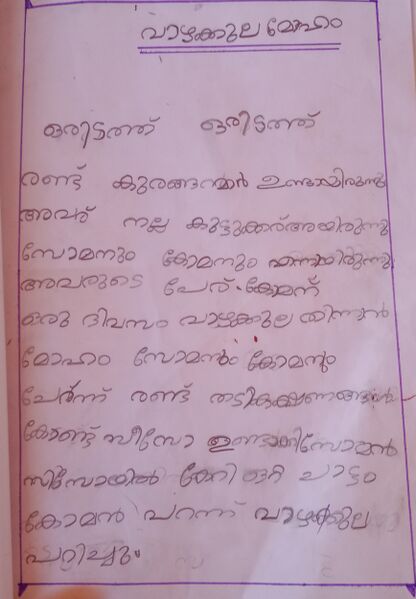 വാഴക്കുല മോഹം
ഒരിടത്ത് ഒരിടത്ത്
രണ്ട് കുരങ്ങന്മാർ ഉണ്ടായിരുന്നു
അവര് നല്ല കുട്ടുക്കര്അയിരുന്നു
സോമനും കോമനും എന്നായിരുന്നു
അവരുടെ പേര്. കോമന്
ഒരു ദിവസം വാഴക്കുല തിന്നാൻ
മോഹം സോമനും കോമനും
ചേർന്ന് രണ്ട് തടികഷണങ്ങൾ
കോണ്ട് സീസോ ഇണ്ടാക്കി സോമൻ
സിസോയിൽ കേറി ഒറ്റ ചാട്ടം
കോമൻ പറന്ന് വാഴക്കുല
പറ്റിച്ചു.